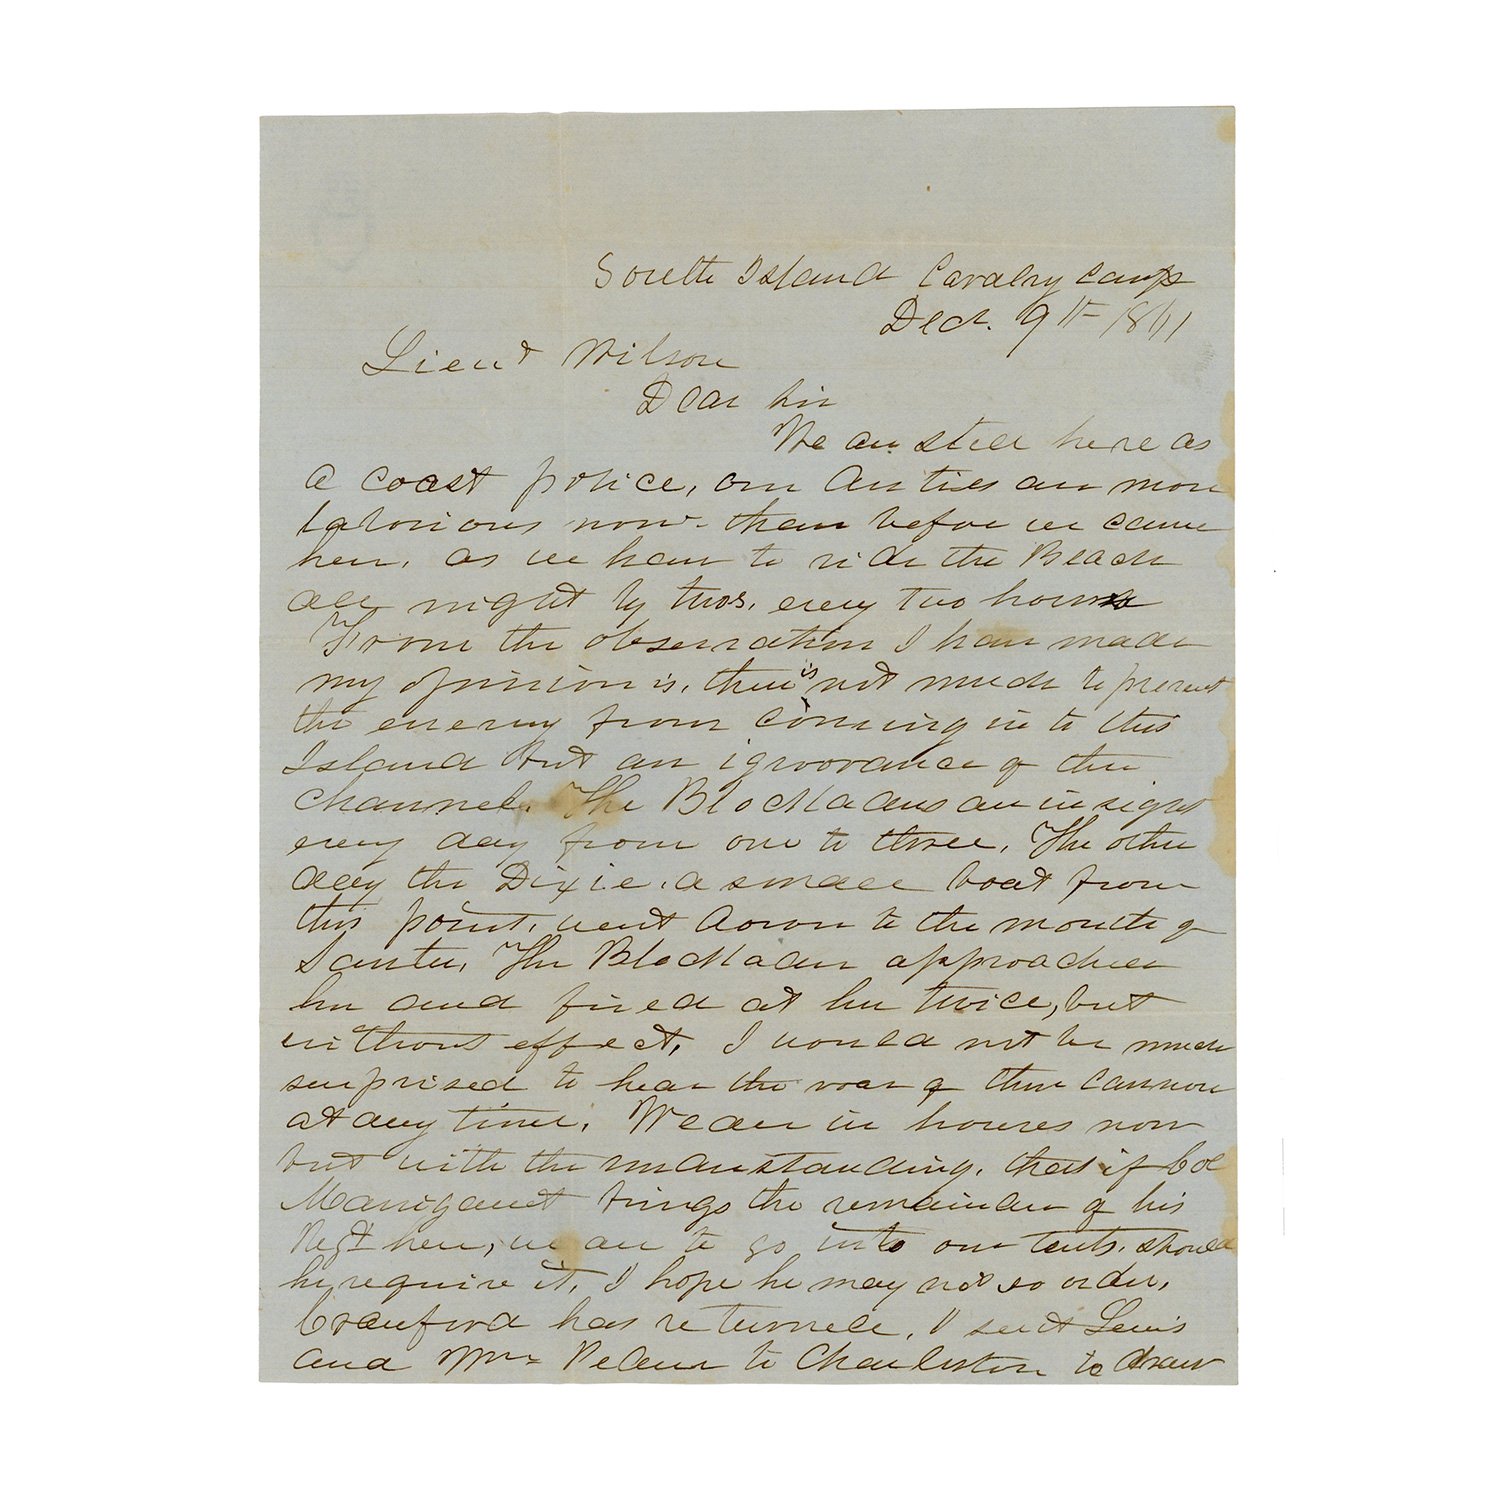 South Island Cavalry Camp
Decr. 9th 1861
Lieut Wilson
Dear Sir
We are still here as
a coast police, our duties are more
laborious now than before we came
here, as we have to ride the Beach
all night by twos, every two hours
From the observation I have made
my opinion is, there is not much to prevent
the enemy from coming in to this
Island but an ignorance of the
channel. The Blockaders are in sight
every day from one to three. The other
day the Dixie, a small boat from
this point, went down to the mouth of
Santee, The Blockader approached
her and fired at her twice, but
without effect, I would not be much
surprised to hear the roar of their cannon
at any time. We are in houses now
but with the understanding, that if Col
Manigault brings the remainder of his
Regt here, we are to go into our tents, should
he require it, I hope he may not so order,
Crawford has returned, I sent Lewis
and to Charleston to draw